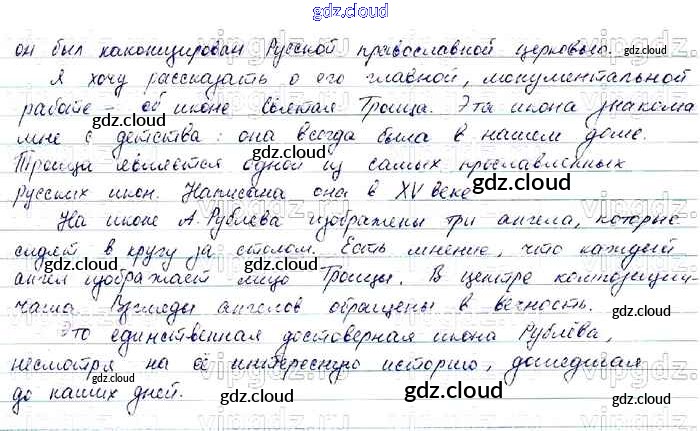 gdz.cloud
он был канонизирован Русской православной церковью.
Я хочу рассказать о его главной, монументальной
работе – об иконе Святая Троица. Эта икона знакома
мне с детства: она всегда была в нашем доме.
Троица является одной из самых прославленных
русских икон. Написана она в XV веке
На иконе А.Рублёва изображены три ангела, которые
сидят в кругу за столом. Есть мнение, что каждый
ангел изображает лицо Троицы. В центре композиции-
чаша Взгляды ангелов обращены в вечность.
Это единственная достоверная икона Рублёва,
несмотря на её интересную историю, дошедшая
до наших дней.